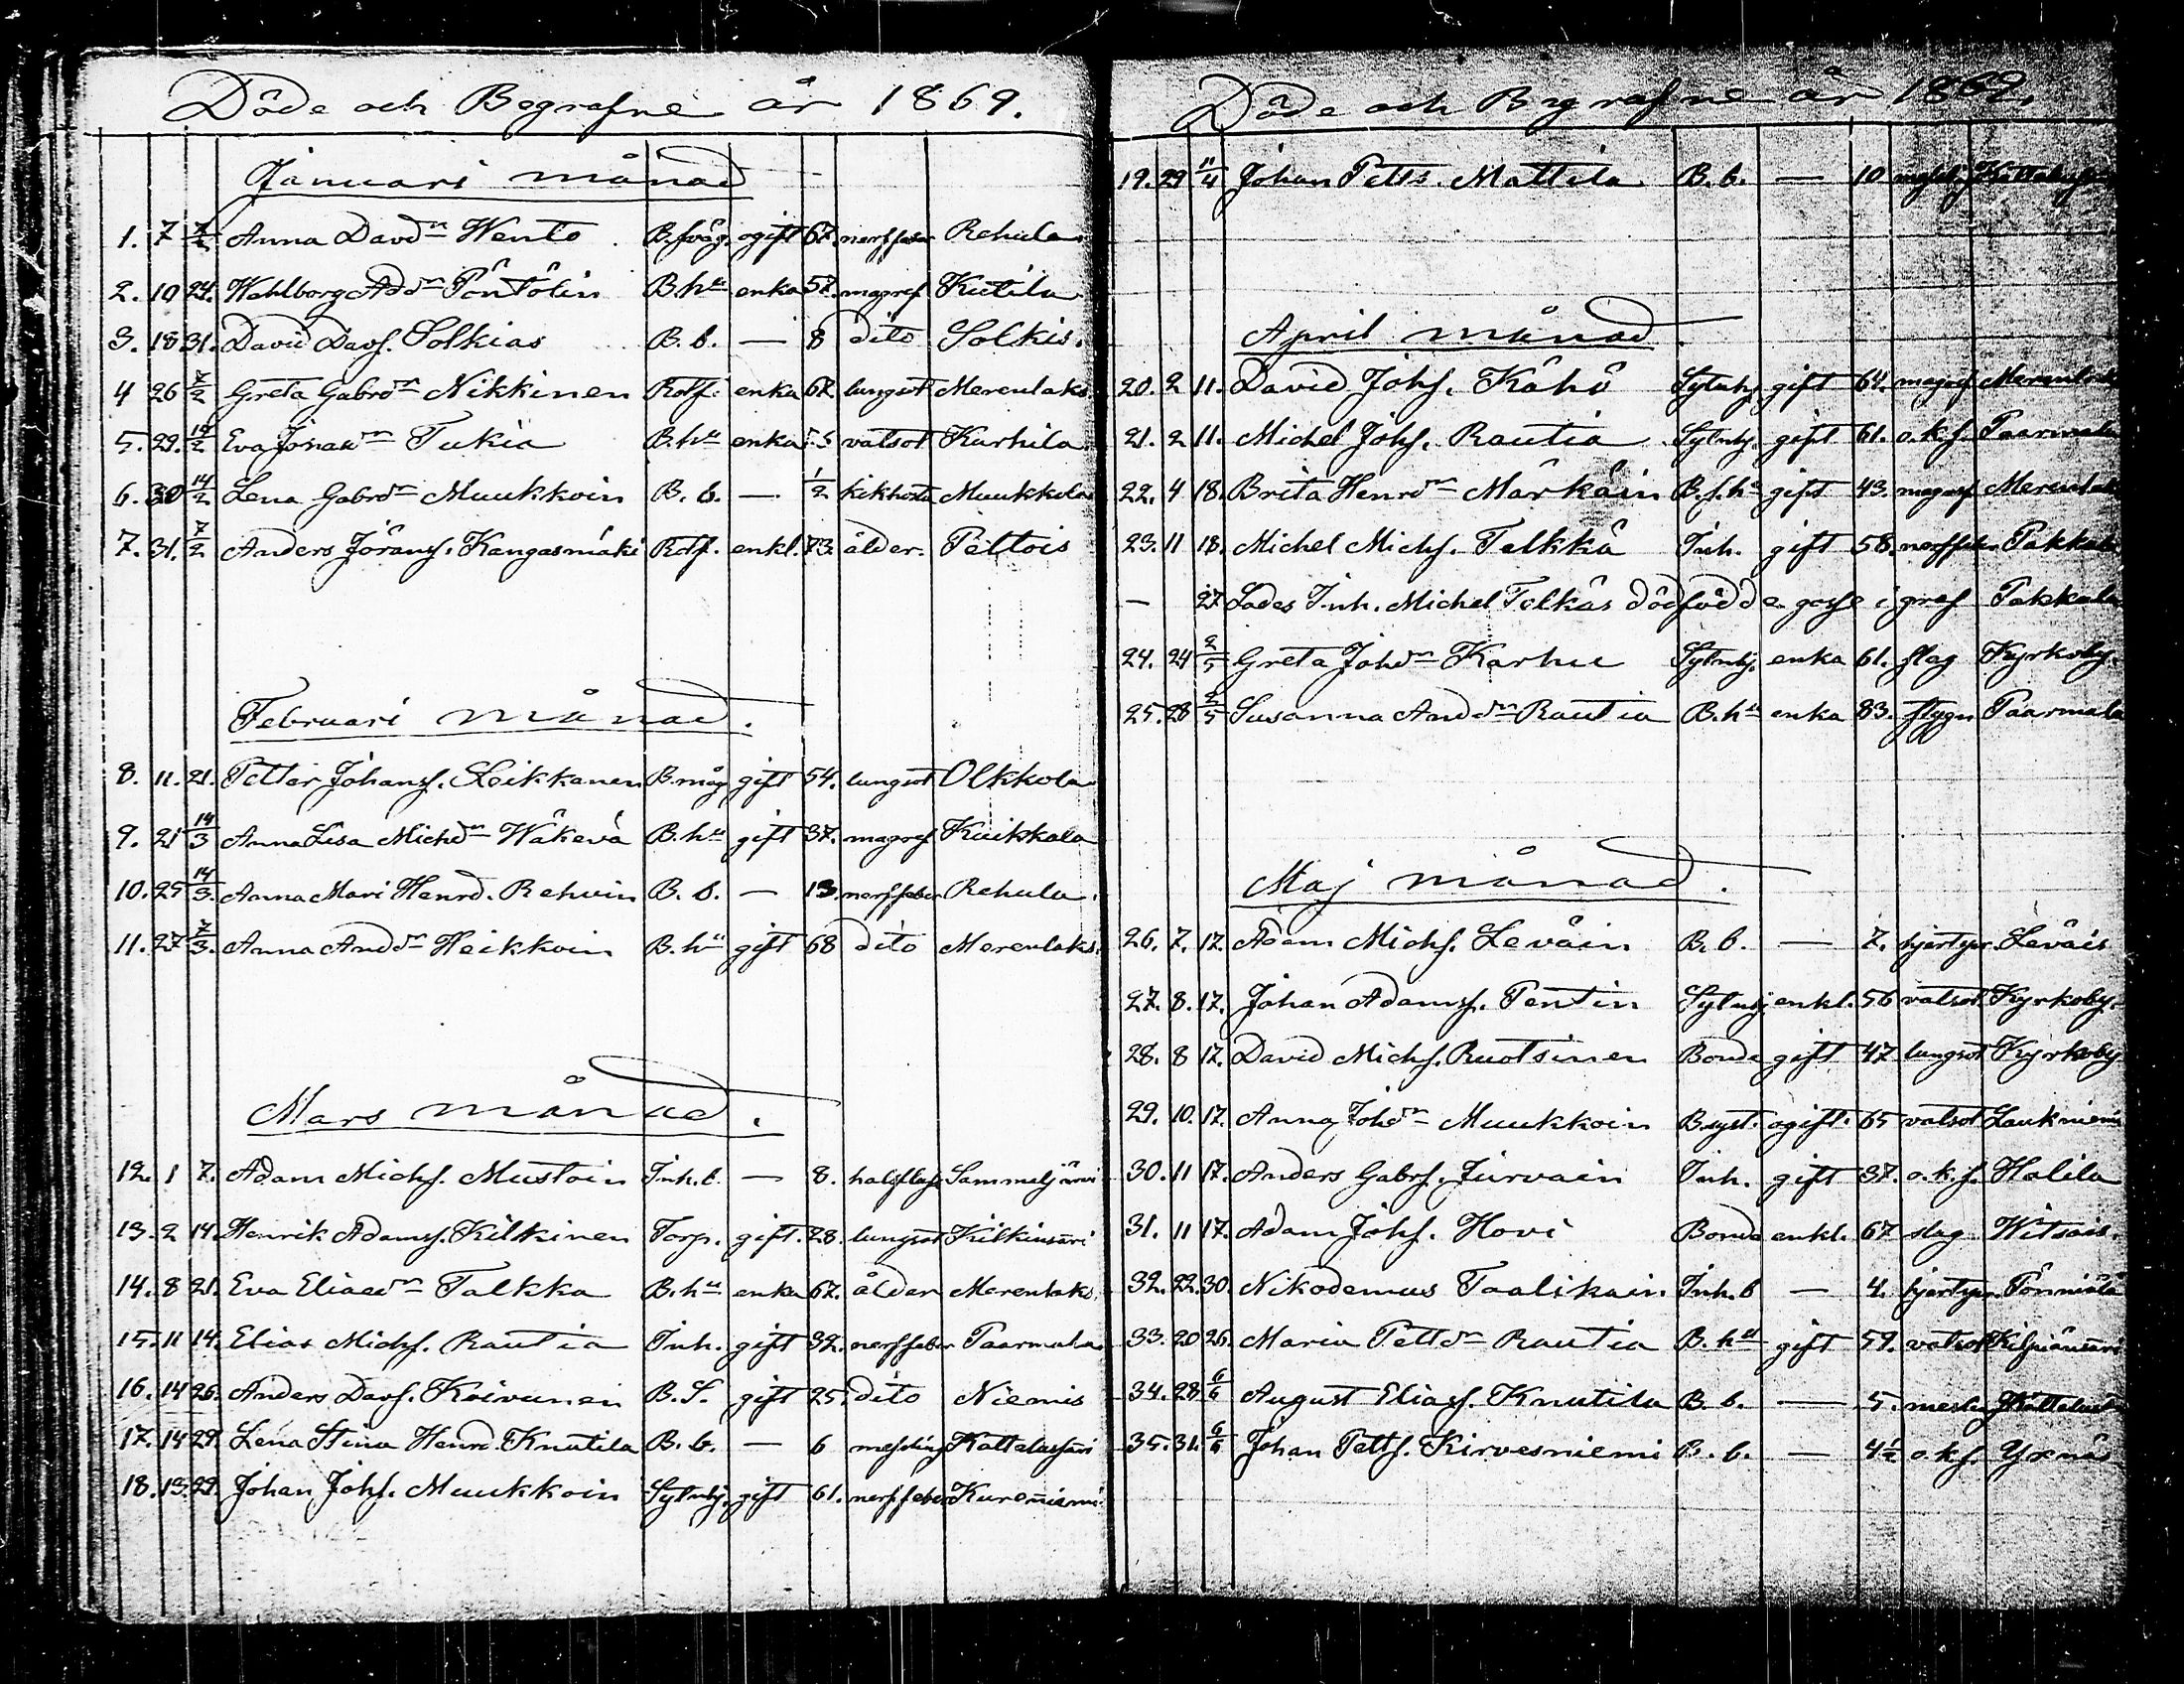 Döde och Begrafne år 1869.
Januari månad
1. 7 7/2 Anna Davdr Wento B. svåg. ogift 67. nerffeber Rehula
2. 10 24. Wahlborg Addr Pöntölin B. hu enka 57. magref Kutila
3. 18 31. David Davs. Solkias B. b. — 8 dito Solkis.
4 26 7/2 Greta Gabrdr Nikkinen Rotf. enka 67. lungsot Merenlaks
5. 29. 14/2 Eva Jönasdr Tukia B. hu enka vatsot Kurhila
6. 30 14/2 Lena Gabrdr Muukkoin B. b. — 1/2 kikhosta Muukkola
7. 31. 7/2 Anders Jörans. Kangasmäki Rotf. enkl. 73. ålder. Peltois
Februari månad.
8. 11. 21. Petter Johans. Leikkanen B. måg gift 54. lungsot Olkkola
9. 21 14/3 Anna Lisa Michdr Wäkevä B. hu gift 37. magref Kuikkala
10. 25 14/3. Anna Mari Henrd. Rehvin B. b. — 13. nerffeber Rehula.
11. 27 7/3. Anna Anddr Heikkoin B. hu gift 68 dito Merenlaks.
Mars månad.
12. 1 7. Adam Michs. Mustoin Inh. b. — 8. halsfluss Sammaljärvi
13. 2 14. Henrik Adams. Kilkinen Torp. gift. 28. lungsot Kilkinsari
14. 8 21. Eva Eliaedr Talkka B. hu enka 67. ålder Merenlaks.
15. 11 14. Elias Michs. Rautia Inh. gift 32. nerffeber Paarmala.
16. 14 26. Anders Davs. Koivunen B. S. gift 25. dito Niemis
17. 14 29. Lena Stina Henrd. Knutila B. b. — 6 messling Kattelussari
18. 19. 29. Johan Johs. Muukkoin Sytnhj. gift 61. nerffeber Kureniemi
Döde och Begrafne år 1869.
19. 29 11/4 Johan Petts. Mattila B. b. — 10
April månad.
20. 2 11. David Johs. Kähö Sytnhj. gift 64. magref Merenlaks
21. 2 11. Michel Johs. Rautia Sytnhj. gift 61. o.k.s. Paarmala
22. 4 18. Brita Henrdr Märkäin B. s. hu gift 43. magref Merenlaks
23. 11 18. Michel Michs. Telkkä Inh. gift 58. nerffeber Pakkala
— 27 Lades Inh. Michel Telkäs dödfödde gosse i graf Pakkala
24. 24 2/5 Greta Johdr Karhu Sytnhj. enka 61. slag Kyrkoby.
25. 28 2/5 Susanna Anddr Rautia B. hu enka 83. stygn Paarmala
Maj månad.
26. 7. 17. Adam Michs. Leväin B. b. — 7. hjertspr. Leväis
27. 8. 17. Johan Adams. Pentin Sytnhj enkl. 56 vatsot Kyrkoby.
28. 8 17. David Michs. Ruotsinen Bonde gift 47 lungsot Kyrkoby
29. 10. 17. Anna Johdr Muukkoin B. syst. ogift. 65 vatsot Laukniemi
30. 11 17. Anders Gabrs. Jurvain Inh. gift 37. o.k.s. Halila
31. 11 17. Adam Johs. Hovi Bonde enkl. 67 slag Witsais.
32. 22. 30. Nikodemus Taalikain. Inh. b — 4. hjertspr. Pönniälä
33. 20 26. Maria Pettdr Rautia B. hu gift 59. vatsot Kiljuänsari
34. 28 6/6 August Elias. Knutila B. b. — 5. mesling Kattelust
35. 31. 6/6 Johan Petts. Kirvesniemi B. b. — 4 1/2 o.k.s. Yxnäs